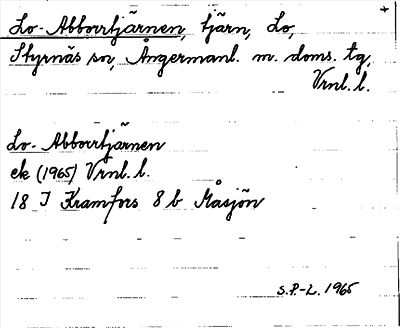 Lo-Abborrtjärnen, tjärn, Lo,
Styrnäs sn, Ångermanl. m. doms. tg,
Vrnl. l.
Lo-Abborrtjärnen
ek (1965) Vrnl. l.
18 I Kramfors 8 b Måsjön
S.P.-L. 1965